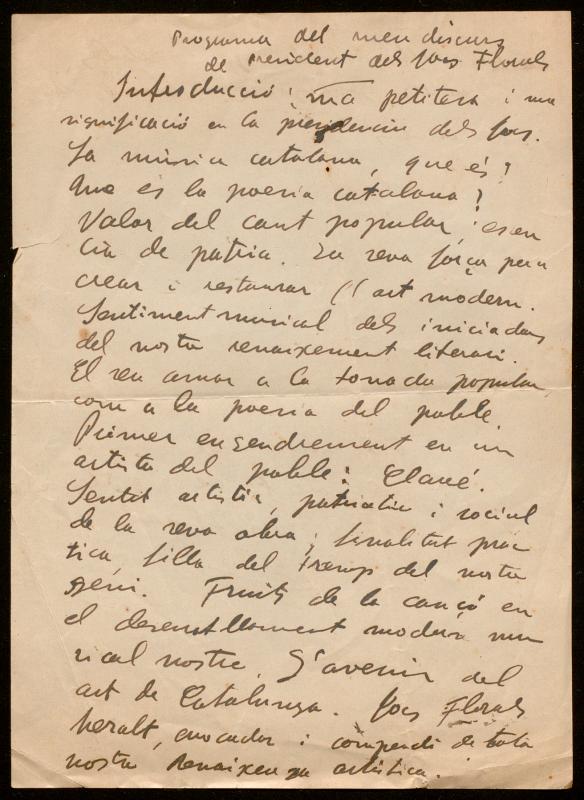 Programa del meu discurs
de president dels Jocs Florals
Introducció: ma petitesa i ma
significació en la presidencia dels Jocs.
La música catalana, que és?
Que és la poesia catalana?
Valor del cant popular, esen
cia de patria. La seva força pera
crear i restaurar l'art modern.
Sentiment musical dels iniciadors
del nostre renaixement literari.
El seu amor a la tonada popular,
com a la poesia del poble.
Primer engendrement en un
artista del poble: Clavé.
Sentit artistic, patriotic i social
de la seva obra; finalitat prac
tica, filla del tremp del nostre
geni. Fruits de la cançó en
el desenrotllament modern mu
sical nostre. L'avenir del
art de Catalunya. Jocs Florals
herald, evocador i compendi de tota
nostra Renaixensa artistica.